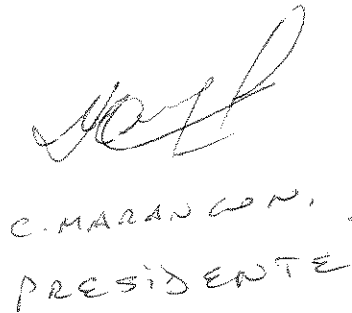 C. MARANGON.
PRESIDENTE